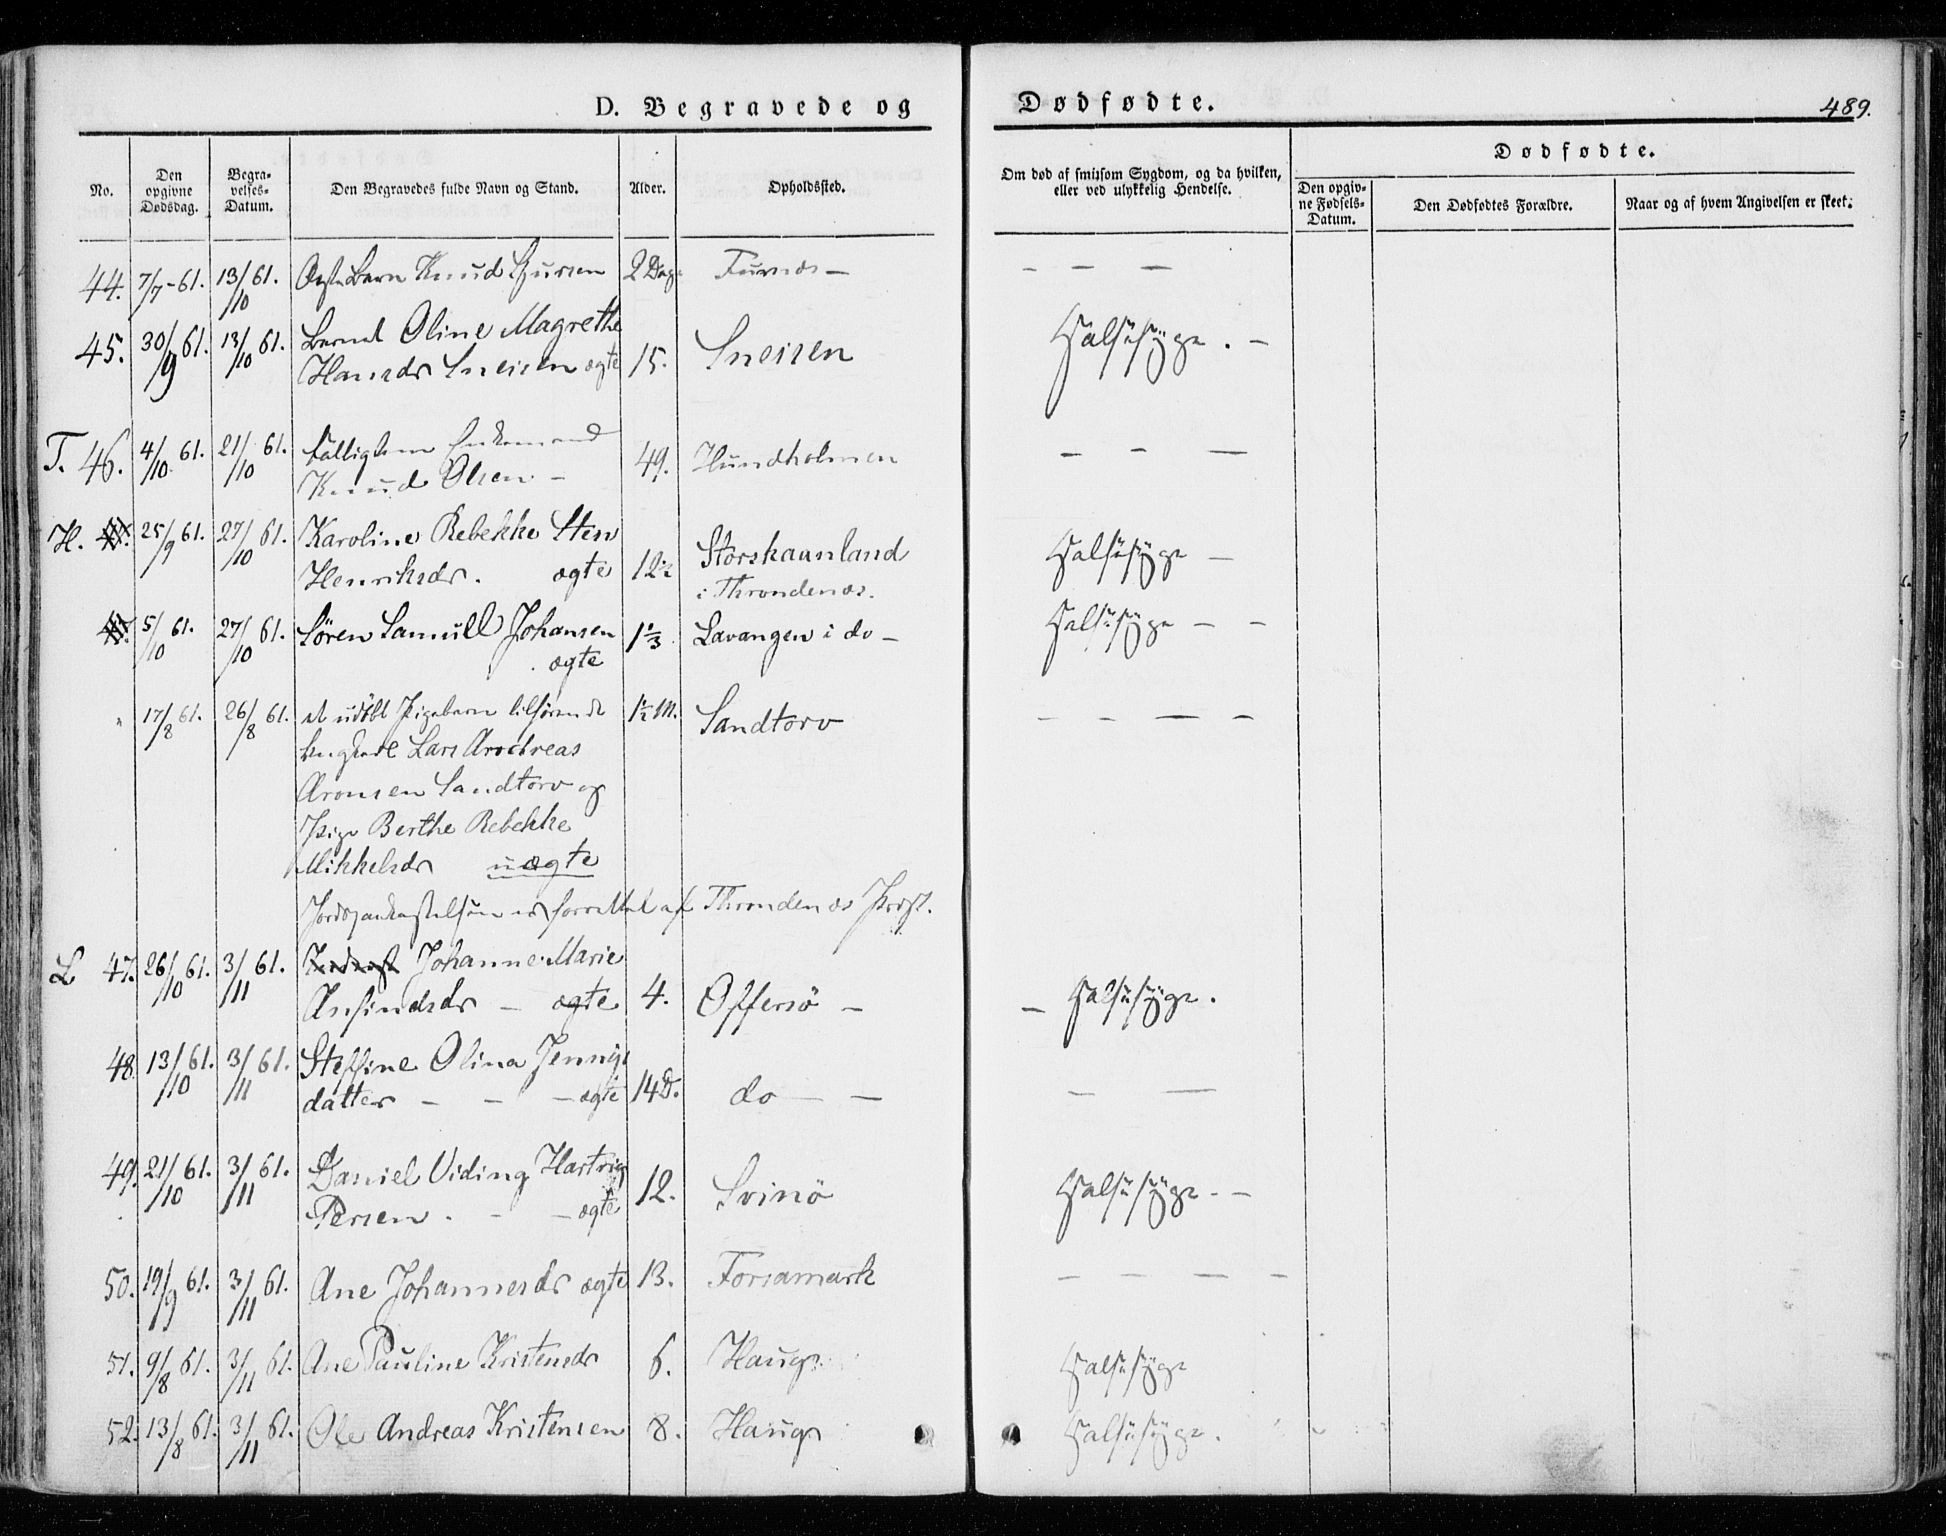 D. Begravede og Dødfødte. 489.
No. Den opgivne Dødsdag. Begravelses-Datum. Den Begravedes fulde Navn og Stand. Alder. Opholdssted. Om død af smitsom Sygdom, og da hvilken, eller ved ulykkelig Hendelse. Dødfødte.
Den opgivne Fødsels-Datum. Den Dødfødtes Forældre. Naar og af hvem Angivelsen er skeet.
44. 7/7-61. 13/10 61. Knud 2 Dage — — —
45. 30/9 61. 13/10 61. Barnet Oline Magrethe
Hansdr Sneisen ægte 15. Sneisen Halssyge. —
T. 46. 4/10 61. 21/10 61. Enkemand
Knud Olsen — 49. Hundholmen — — —
H. 25/9 61. 27/10 61. Karoline Rebekke Sten
Henriksdr. ægte 12 Storskaanland Halssyge —
i Throndenæs.
5/10 61. 27/10 61. Sören Samuel Johansen 1 1/3 Lavangen i do — Halssyge — —
ægte
" 17/8 61. 26/8 61. et udöbt Pigebarn tilhörende 1½ M. Sandtorv — — — —
Lars Andreas
Aronsen Sandtorv og
Pige Berthe Rebekke
Mikkelsdr uægte
Jordpaakastelsen er forrettet af Throndenæs Præst.
L 47. 26/10 61. 3/11 61. Johanne Marie
Ansindsdr — ægte 4. Offersö — — Halssyge.
48. 13/10 61. 3/11 61. Steffine Olina Jennys
datter — — — ægte 14 D. do — — — —
49. 21/10 61. 3/11 61. Daniel Viding Hartvig
Persen. — — ægte 12. Svinö Halssyge. —
50. 19/9 61. 3/11 61. Ane Johannesdr ægte 13. Forsamark — — — —
51. 9/8 61. 3/11 61. Ane Pauline Kristensdr 6. Hauge Halssyge
52. 13/8 61. 3/11 61. Ole Andreas Kristensen 8. Hauge Halssyge.